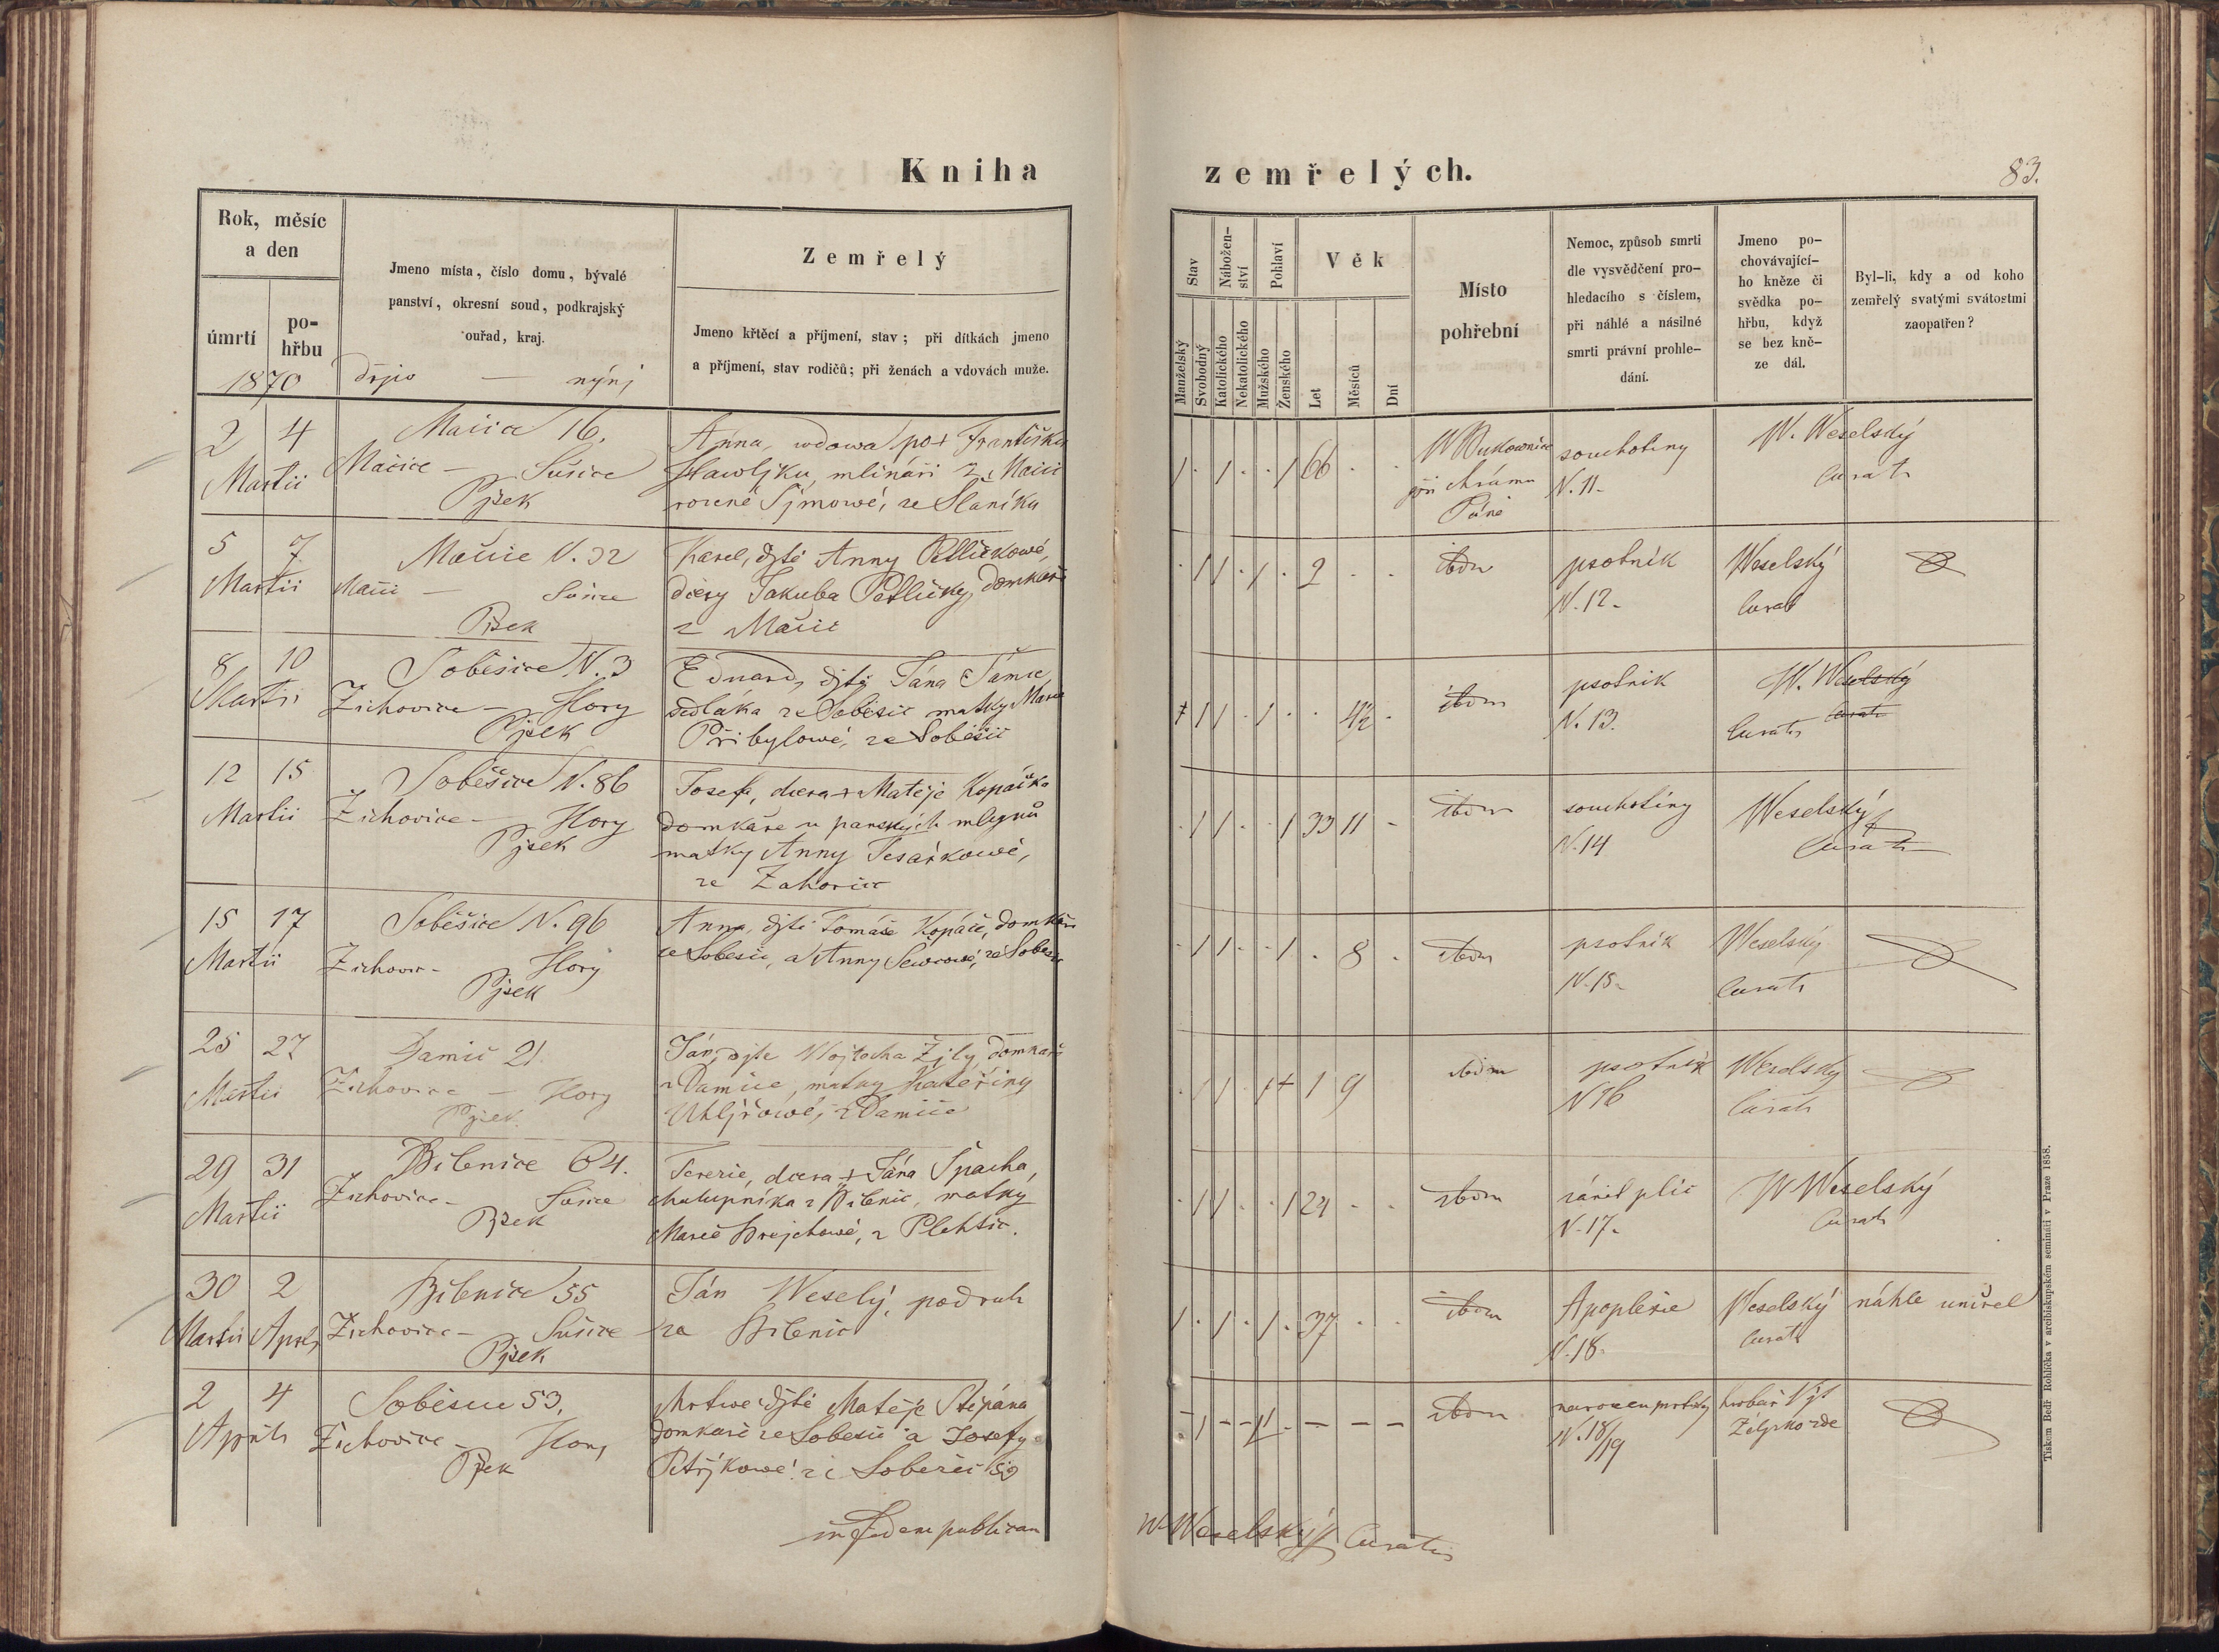 Kniha zemřelých.
83.
Rok, měsíc
a den
úmrtí
po-
hřbu
1870
Jmeno místa, číslo domu, bývalé
panství, okresní soud, podkrajský
ouřad, kraj.
dřjw — nýnj
Zemřelý
Jmeno křtěcí a příjmení, stav; při dítkách jmeno
a příjmení, stav rodičů; při ženách a vdovách muže.
Stav
Manželský
Svobodný
Nábožen-
ství
Katolického
Nekatolického
Pohlaví
Mužského
Ženského
Věk
Let
Měsíců
Dní
Místo
pohřební
Nemoc, způsob smrti
dle vysvědčení pro-
hledacího s číslem,
při náhlé a násilné
smrti právní prohle-
dání.
Jmeno po-
chovávající-
ho kněze či
svědka po-
hřbu, když
se bez kně-
ze dál.
Byl-li, kdy a od koho
zemřelý svatými svátostmi
zaopatřen?
2 4
Martii
Mačice 16.
Mačice — Sušice
Pjsek
Anna, wdowa po + Františku
mlináři z Mačic
rozené Sjmowé, ze Slaníku
1 . 1 . . 1 66 . .
W Bukownice
při chrámu
Páně
souchotiny
N. 11.
W. Weselský
Curat
5 7
Martii
Mačice N. 32
Mačic — Sušice
Pisek
Karel, djtě Anny Petličkowé,
dcery Jakuba Petličky, domkáře
z Mačic
. 1 1 . 1 . 2 . .
ibdm
psotnik
N. 12.
Weselský
Curat
8 10
Martii
Soběšice N. 3
Žichovice — Hory
Pjsek
Eduard, djtě Jána
sedláka ze Soběšic matky Marie
Přibylowé, ze Soběšic
1 1 . 1 . . 4½ .
ibdm
psotnik
N. 13.
W. Weselský
Curat
12 15
Martii
Soběšice N. 86
Žichovice — Hory
Pjsek
Josefa, dcera + Matěje Kopáčka
domkáře u panských mlegnů
matky Anny Tesařkowé,
ze Zahorčic
. 1 1 . . 1 33 11 .
ibdm
souchotiny
N. 14
Weselský
Curat
15 17
Martii
Soběšice N. 96
Žichovic — Hory
Pjsek
Anna, djtě Tomáše Kopáče, domkáře
ze Soběšic, a Anny ze Soběšic
. 1 1 . . 1 . 8 .
ibdm
psotnik
N. 15.
Weselský
Curat
25 27
Martii
Damič 21.
Žichovice — Hory
Pjsek
Ján, djte Wojtecha Žjly domkáře
z Damice, matky Kateřiny
Uhljřowé, z Damice
1 9
ibdm
psotnik
N 16
Weselský
Curat
29 31
Martii
Bilenice 64.
Žichovice — Sušice
Pjsek
Terezie, dcera + Jána Špacha,
chalupníka z Bilenic, matky
Marie Brejchowé, z Plehtic.
. 1 1 . . 1 24 . .
ibdm
zánět plic
N. 17.
W Weselský
Curat
30 2
Martii April
Bilenice 55
Žichovice — Sušice
Pjsek
Ján Weselý, podruh
za Bilenic
1 . 1 . 1 . 37 . .
ibdm
Apoplexie
N. 18.
Weselský
Curat
náhle umřel
2 4
Aprilis
Soběšice 53.
Žichovice — Hory
Pjsek
Mrtwé djtě Matěje Štěpána
domkáře ze Soběšic a Josefy
Petřjkowé ze Soběšic 59
— 1 — — 1 . — — —
ibdm
narozen mrtwý
N. 18/19
hrobař Vjt
in fidem publicam
W Weselský Curatus
Tiskem Bedř. Rohlíčka v arcibiskupském semináři v Praze 1858.